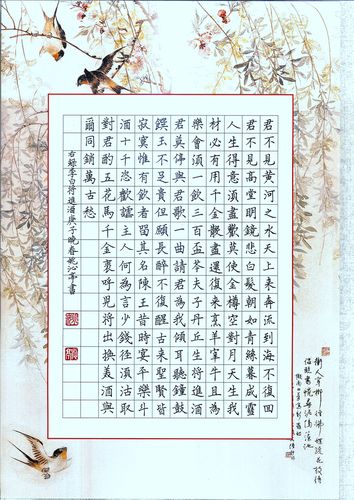 君不見黃河之水天上来奔流到海不復回
君不見高堂明鏡悲白髮朝如青絲暮成雪
人生得意湏盡歡莫使金樽空對月天生我
材必有用千金散盡還復来烹羊宰牛且為
樂會湏一飲三百盃岑夫子丹丘生將進酒
君莫停與君歌一曲請君為我傾耳聽鐘鼓
饌玉不足貴但願長醉不復醒古来聖賢皆
寂寞惟有飲者留其名陳王昔時宴平樂斗
酒十千恣歡謔主人何為言少錢徑湏沽取
對君酌五花馬千金裘呼兒將出換美酒與
爾同銷萬古愁
右錄李白將進酒庚子晚春姚沁亭書